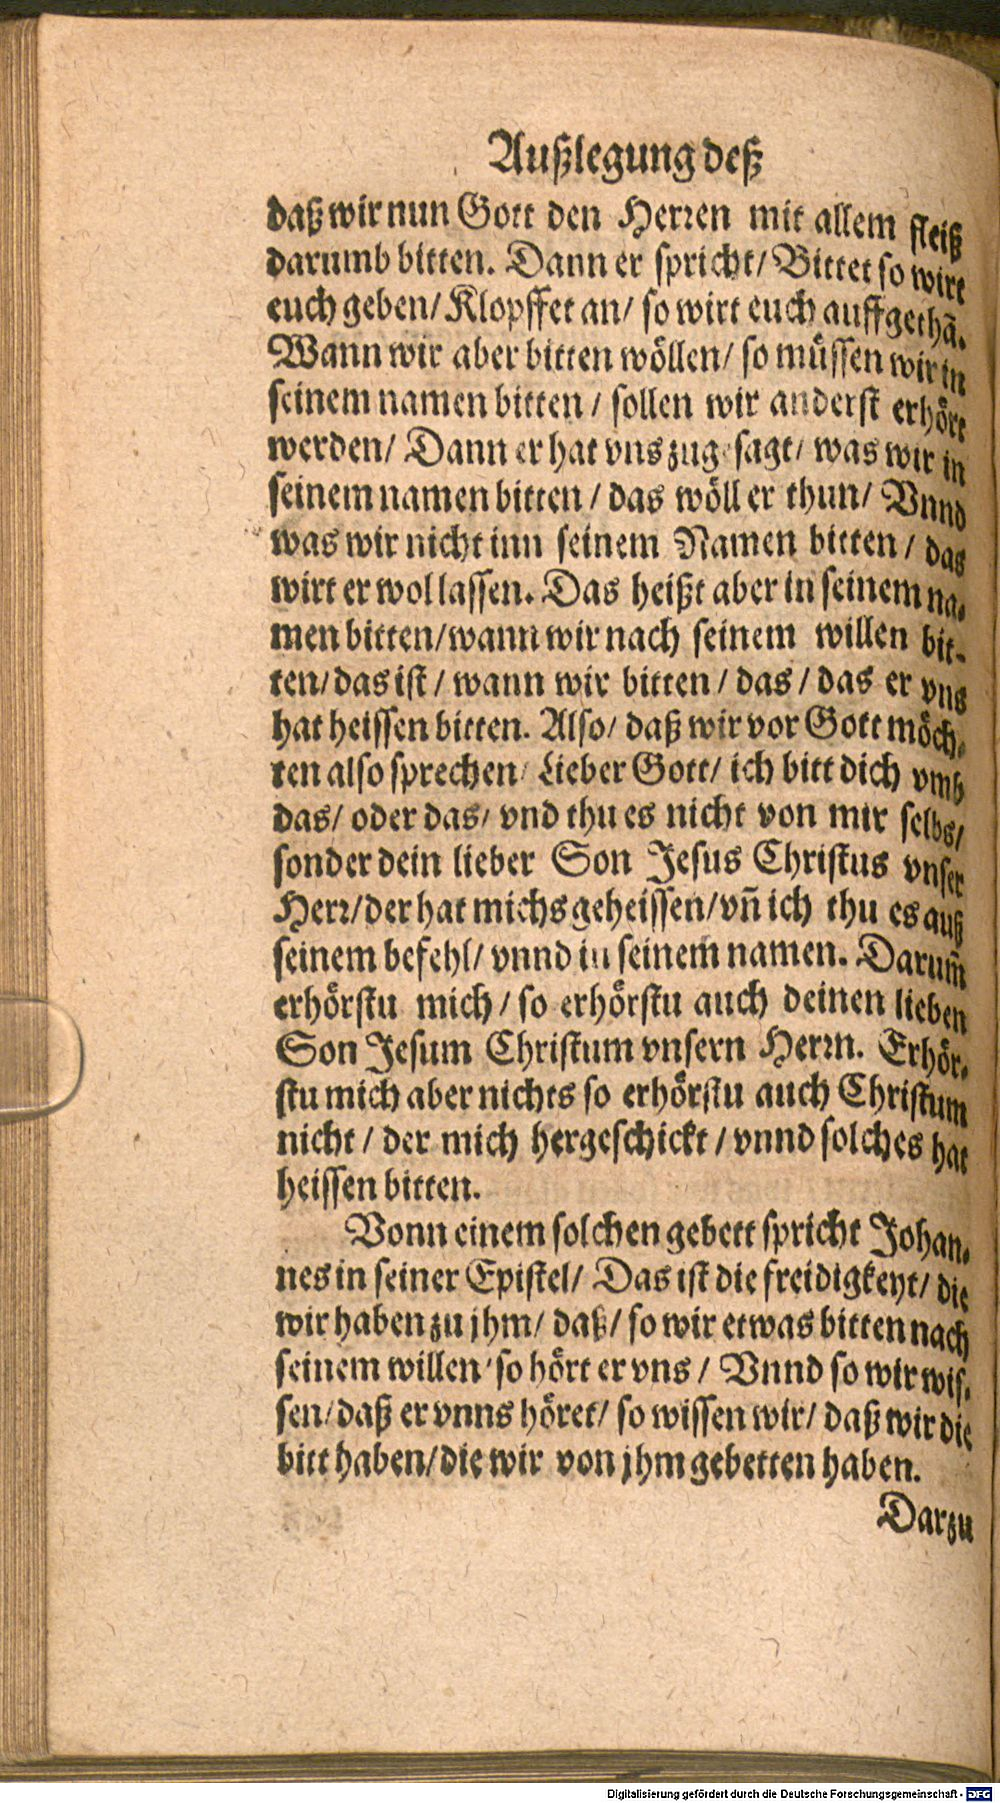 Außlegung deß
daß wir nun Gott den Herren mit allem fleiß
darumb bitten. Dann er spricht/ Bittet so wirt
euch geben/ Klopffet an/ so wirt euch auffgethā.
Wann wir aber bitten wöllen/ so müssen wir in
seinem namen bitten / sollen wir anderst erhört
werden/ Dann er hat vns zugesagt/ was wir in
seinem namen bitten / das wöll er thun/ Vnnd
was wir nicht inn seinem Namen bitten / das
wirt er wol lassen. Das heißt aber in seinem na-
men bitten/wann wir nach seinem willen bit-
ten/das ist / wann wir bitten / das / das er vns
hat heissen bitten. Also/ daß wir vor Gott möch-
ten also sprechen/ Lieber Gott/ ich bitt dich vmb
das/ oder das/ vnd thu es nicht von mir selbs/
sonder dein lieber Son Jesus Christus vnser
Herr/der hat michs geheissen/vñ ich thu es auß
seinem befehl/ vnnd in seinem namen. Darum̃
erhörstu mich / so erhörstu auch deinen lieben
Son Jesum Christum vnsern Herrn. Erhör-
stu mich aber nichts so erhörstu auch Christum
nicht / der mich hergeschickt / vnnd solches hat
heissen bitten.
Vonn einem solchen gebett spricht Johan-
nes in seiner Epistel/ Das ist die freidigkeyt/ die
wir haben zu jhm/ daß/ so wir etwas bitten nach
seinem willen/ so hört er vns / Vnnd so wir wis-
sen/daß er vnns höret/ so wissen wir/ daß wir die
bitt haben/die wir von jhm gebetten haben.
Darzu
Digitalisierung gefördert durch die Deutsche Forschungsgemeinschaft - DFG